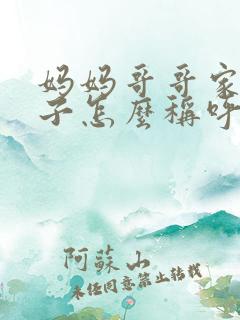 妈妈哥哥家
子怎麼稱呼
阿蘇山
未经同意禁止转载